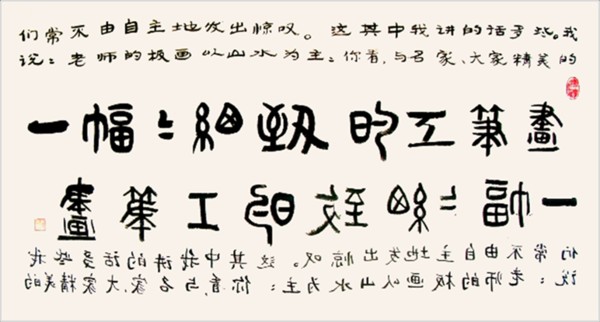 们常不由自主地发出惊叹。这其中我讲的话多些。我
说：老师的板画以山水为主：你看，与名家、大家精美的
一幅〻細致的工筆畫
一幅〻細致的工筆畫
们常不由自主地发出惊叹。这其中我讲的话多些我
说：老师的板画以山水为主：你看，与名家、大家精美的